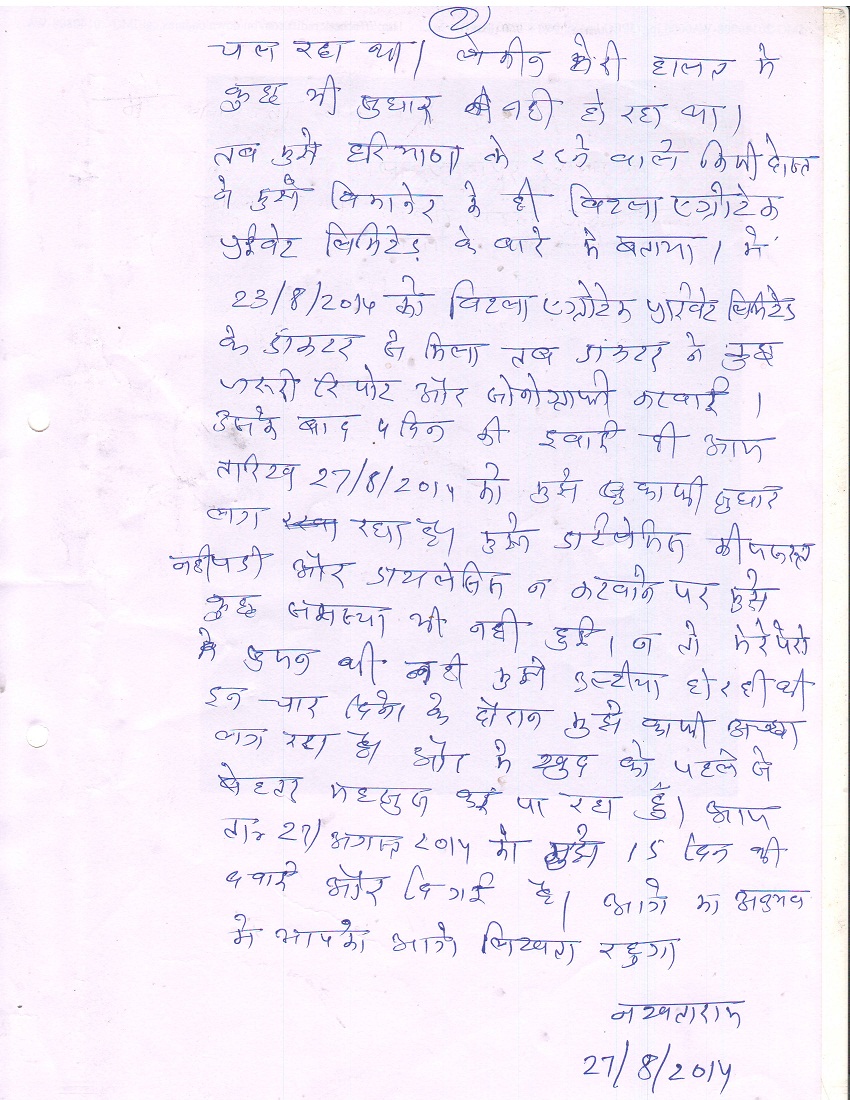 2
चल रहा था। लेकीन मेरी हालत मे
कुछ भी सुधार नही हो रहा था।
तब मुझे हरियाणा के रहने वाले किसी दोस्त
ने मुझे बिकानेर के ही बिरला एग्रोटेक
प्राईवेट लिमिटेड के बारे मे बताया। में
23/8/2014 को बिरला एग्रोटेक प्राईवेट लिमिटेड
के डॉक्टर से मिला तब डॉक्टर ने कुछ
जरूरी रिपोट और सोनोग्राफी करवाई।
उसके बाद 4 दिन की दवाई दी आज
तारिख 27/8/2014 को मुझे काफी सुधार
लग रहा है। मुझे डाईलेसिस की जरूरत
नहीपडी और डायलेसिस न करवाने पर मुझे
कुछ समस्या भी नही हुई। न तो मेरे पैरो
मे सुजन थी नही मुझे उल्टीया हो रही थी
इन चार दिनो के दौरान मुझे काफी अच्छा
लग रहा है। और मे खुद को पहले से
बेहतर महसुस कर पा रहा हुँ। आज
ता॰ 27/अगस्त 2014 को मुझे 15 दिन की
दवाई और दि गई है। आगे का अनुभव
मे आपको आगे लिखता रहुगा
नखताराम
27/8/2014